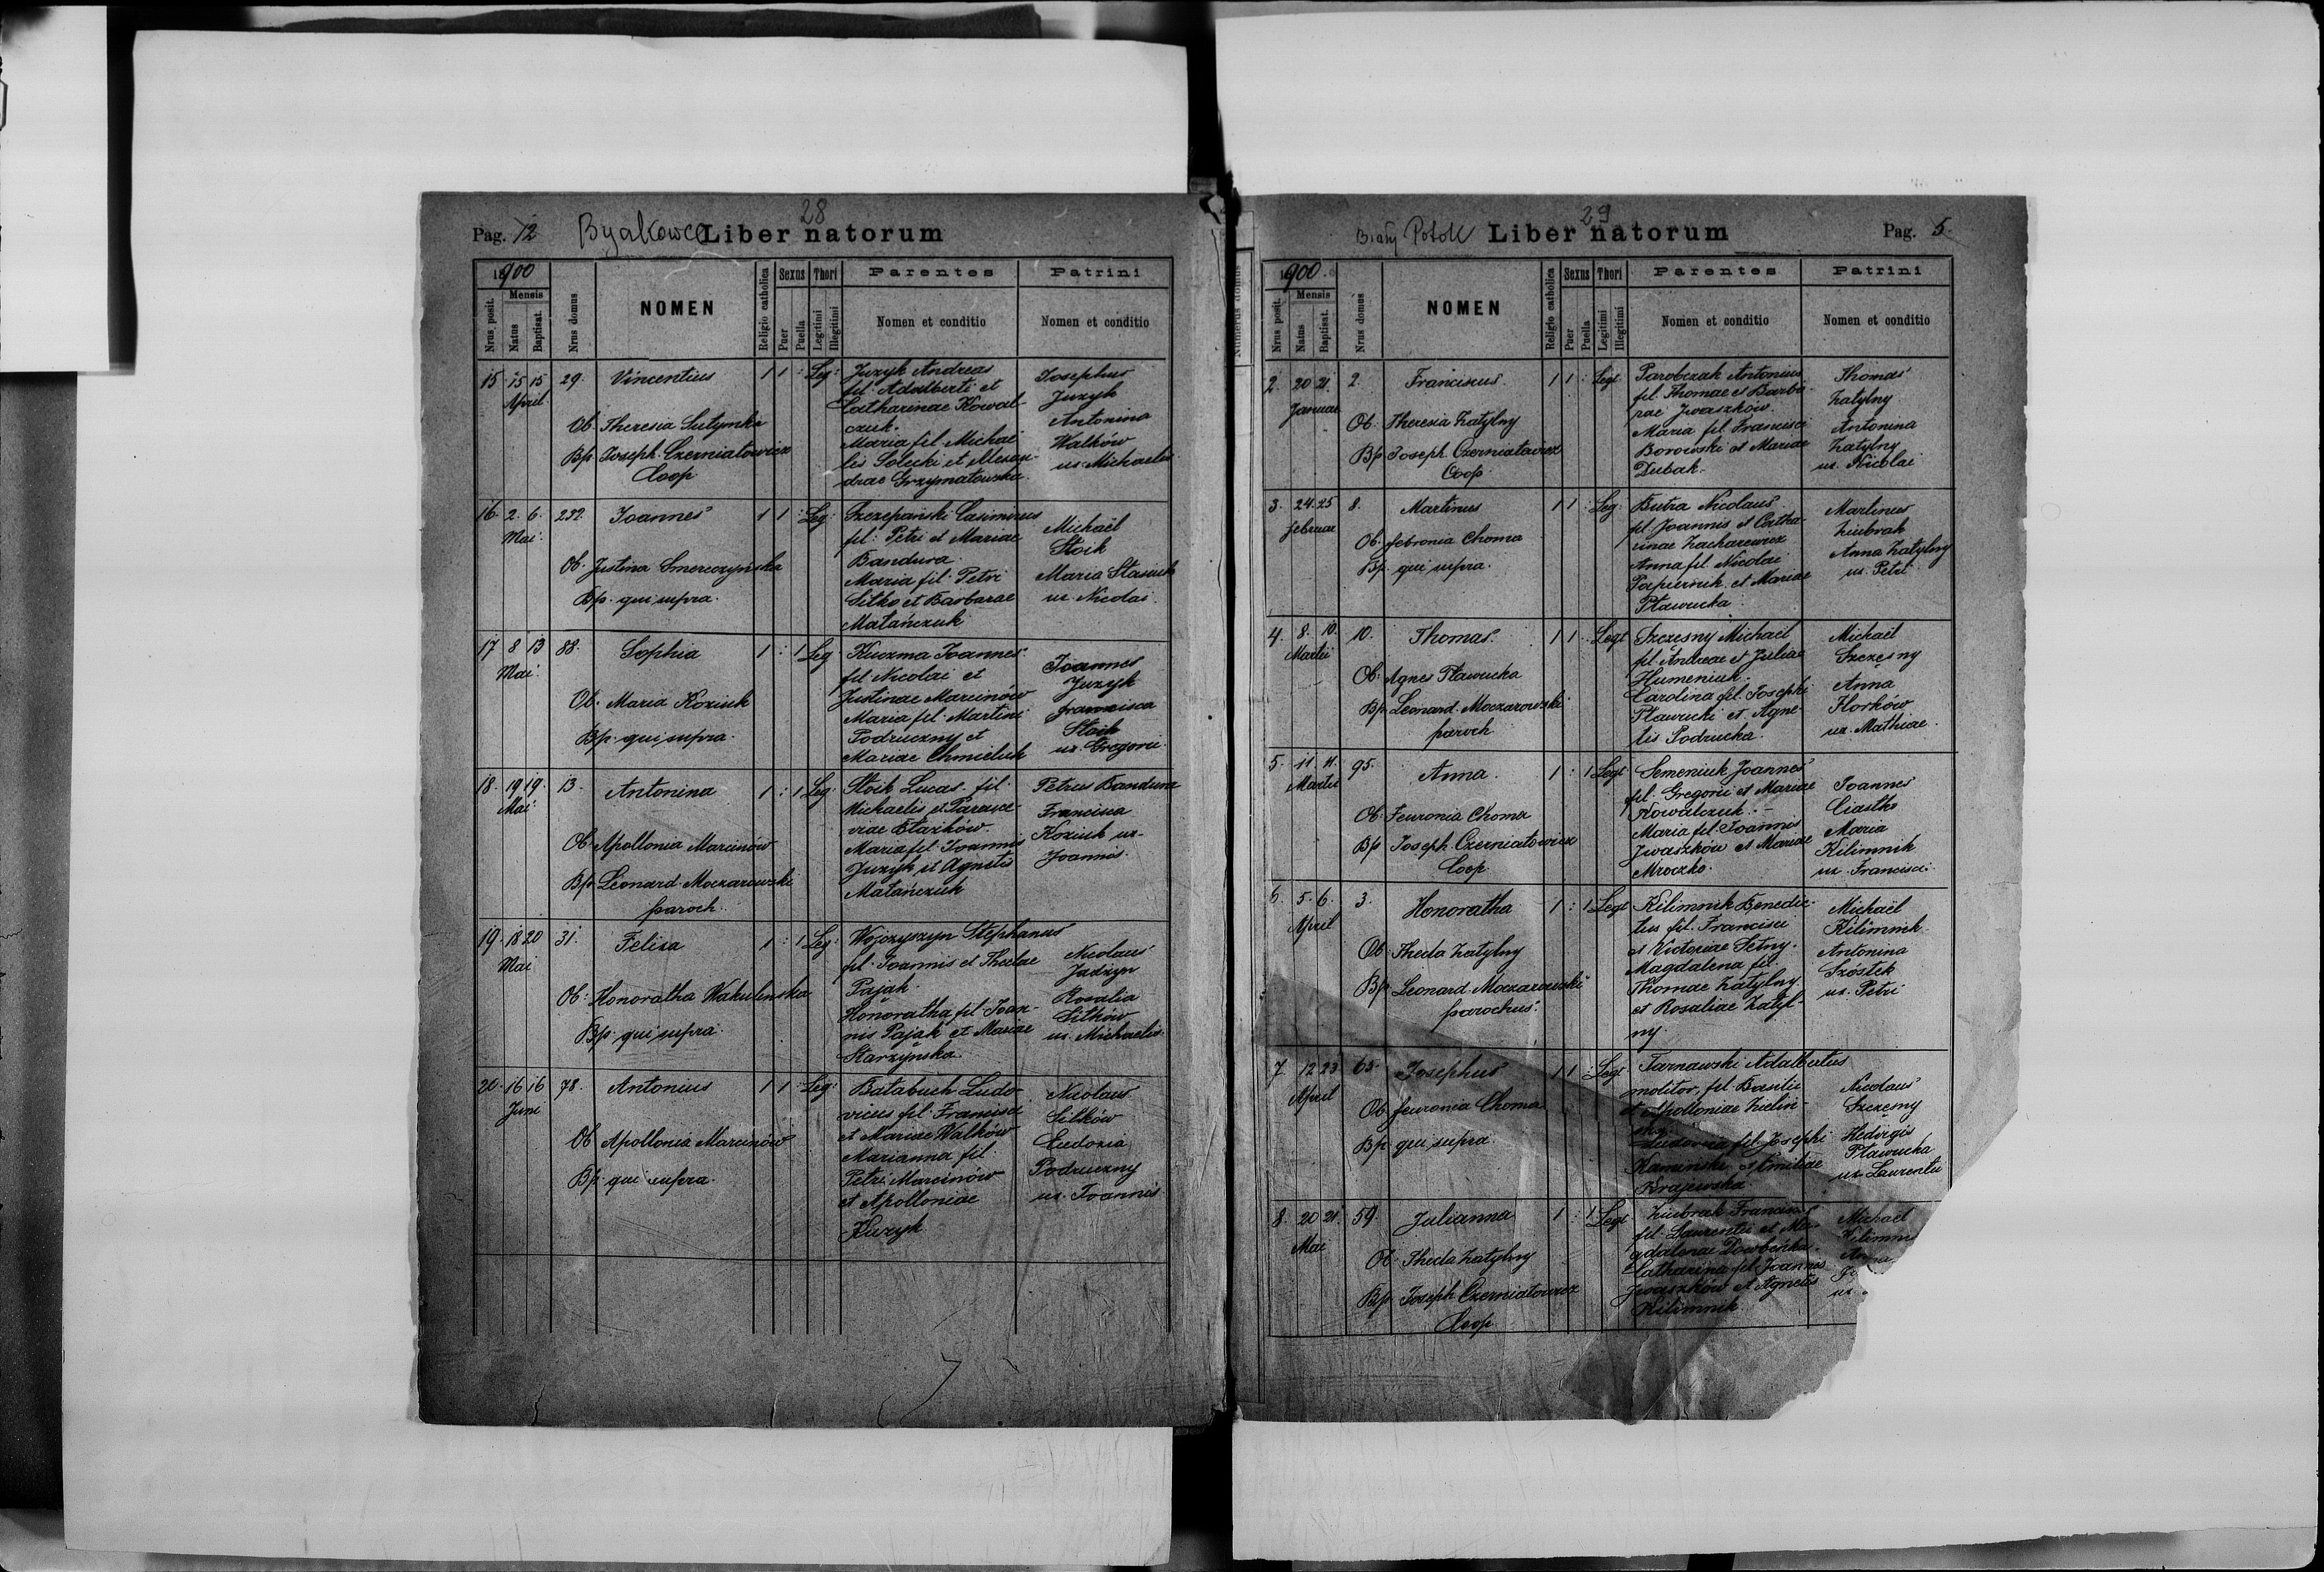 28
Pag. 12 Byalkowce Liber natorum
1900
Nrus posit.
Mensis
Natus
Baptisat.
Nrus domus
NOMEN
Religio catholica
Sexus
Puer
Puella
Thori
Legitimi
Illegitimi
Parentes
Nomen et conditio
Patrini
Nomen et conditio
15 15 15 29. Vincentius 1 1 : Leg:
April
Ob. Theresia
Bp Joseph Czerniatowicz
Coop
Juzyk Andreas
fil. Adalberti et
Catharinae Kowal-
czuk.
Maria fil. Michae
lis Solecki et Alexan
drae Grzymatowska
Josephus
Juzyk
Antonina
Walków
ux. Michaelis
16. 2. 6. 232. Joannes 1 1 : Leg:
Mai.
Ob. Justina Smereczynska
Bp. qui supra.
Szczepański Casimirus
fil. Petri et Mariae
Bandura.
Maria fil. Petri
Sitko et Barbarae
Matańczuk
Michaël
Stoik
Maria Stasiuk
ux. Nicolai.
17 8 13 88. Sophia 1 : 1 Leg
Mai.
Ob. Maria Koziuk
Bp. qui supra.
Kuczma Joannes
fil. Nicolai et
Justinae Marcinów
Maria fil. Martini
Podruczny et
Mariae Chmieluk
Joannes
Juzyk
Francisca
Stoik
ux. Gregorii.
18. 19 19. 13. Antonina 1 : 1 Leg:
Mai
Ob. Apollonia Marcinów
Bp. Leonard Moczarowski
paroch.
Stoik Lucas fil.
Michaelis et Parasce-
viae
Maria fil. Joannis
Juzyk et Agnetis
Matańczuk
Petrus Bandura
Francisca
Koziuk ux.
Joannis.
19. 18 20 31. Felixa 1 : 1 Leg:
Mai
Ob: Honoratha Wakulinska
Bp. qui supra.
Wojczyszyn Stephanus
fil. Joannis et Theclae
Pajak.
Honoratha fil. Joan-
nis Pajak et Mariae
Starzyńska.
Nicolaus
Jadzyn
Rosalia
Sitków
ux. Michaelis.
20. 16 16 78. Antonius 1 1 : Leg:
Juni
Ob Apollonia Marcinów
Bp. qui supra.
Batabuch Ludo-
vicus fil. Francisci
et Mariae Walków
Marianna fil.
Petri Marcinów
et Apolloniae
Juzyk
Nicolaus
Sitków
Eudoxia
Podruczny
ux. Joannis.
29
Biały Potok Liber natorum Pag. 5.
1900.
Nrus posit.
Mensis
Natus
Baptisat.
Nrus domus
NOMEN
Religio catholica
Sexus
Puer
Puella
Thori
Legitimi
Illegitimi
Parentes
Nomen et conditio
Patrini
Nomen et conditio
2. 20 21. 2. Franciscus 1 1 : Legt
Januar
Ob. Theresia Zatylny
Bp Joseph Czerniatowicz
Coop.
Parobczak Antonius
fil. Thomae et Barba-
rae Jwaszków.
Maria fil. Francisci
Borowski et Mariae
Dubak.
Thomas
Zatylny
Antonina
Zatylny
ux. Nicolai
3. 24. 25 8. Martinus 1 1 : Leg:
Februar
Ob. Febronia Choma
Bp. qui supra.
Butra Nicolaus
fil. Joannis et Catha-
rinae Zacharewicz
Anna fil. Nicolai
Papiernik et Mariae
Pławucka.
Martinus
Ziubrak
Anna Zatylny
ux. Petri
4. 8. 10. 10. Thomas. 1 1 : Legt
Martii
Ob: Agnes Pławucka
Bp. Leonard Moczarowski
paroch.
Szczesny Michaël
fil. Andreae et Juliae
Humeniuk.
Carolina fil. Josephi
Pławucki et Agne-
tis Podrucka.
Michaël
Szczęsny
Anna
Horków
ux. Mathiae.
5. 11. 11. 95. Anna. 1 : 1 Legt
Martii
Ob. Feuronia Choma
Bp Joseph Czerniatowicz
Coop.
Semeniuk Joannes
fil. Gregorii et Mariae
Kowalczuk.
Maria fil. Joannis
Jwaszków et Mariae
Mroczko.
Joannes
Ciastko
Maria
Kilimnik
ux. Francisci.
6. 5. 6. 3. Honoratha 1 : 1 Legt
April
Ob. Thecla Zatylny
Bp. Leonard Moczarowski
parochus.
Kilimnik Benedic-
tus fil. Francisci
et Victoriae Setny.
Magdalena fil.
Thomae Zatylny
et Rosaliae Zatyl-
ny.
Michaël
Kilimnik
Antonina
Szóstek
ux. Petri
7. 12 23 65. Josephus 1 1 : Legt
April
Ob. Feuronia Choma
Bp. qui supra.
Tarnawski Adalbertus
molitor, fil. Basilii
et Apolloniae Zielin-
ska.
Ludovica fil. Josephi
Kaminski et Emiliae
Krajewska.
Nicolaus
Szczęsny
Hedvigis
Pławucka
ux. Laurentii
8. 20 21. 59. Julianna 1 : 1 Legt
Mai
Ob. Thecla Zatylny
Bp. Joseph Czerniatowicz
Coop
Ziubrak Franciscus
fil. Laurentii et Ma-
gdalenae
Catharina fil. Joannis
Jwaszków et Agnetis
Kilimnik
Michaël
Kilimni
Anna
ux.